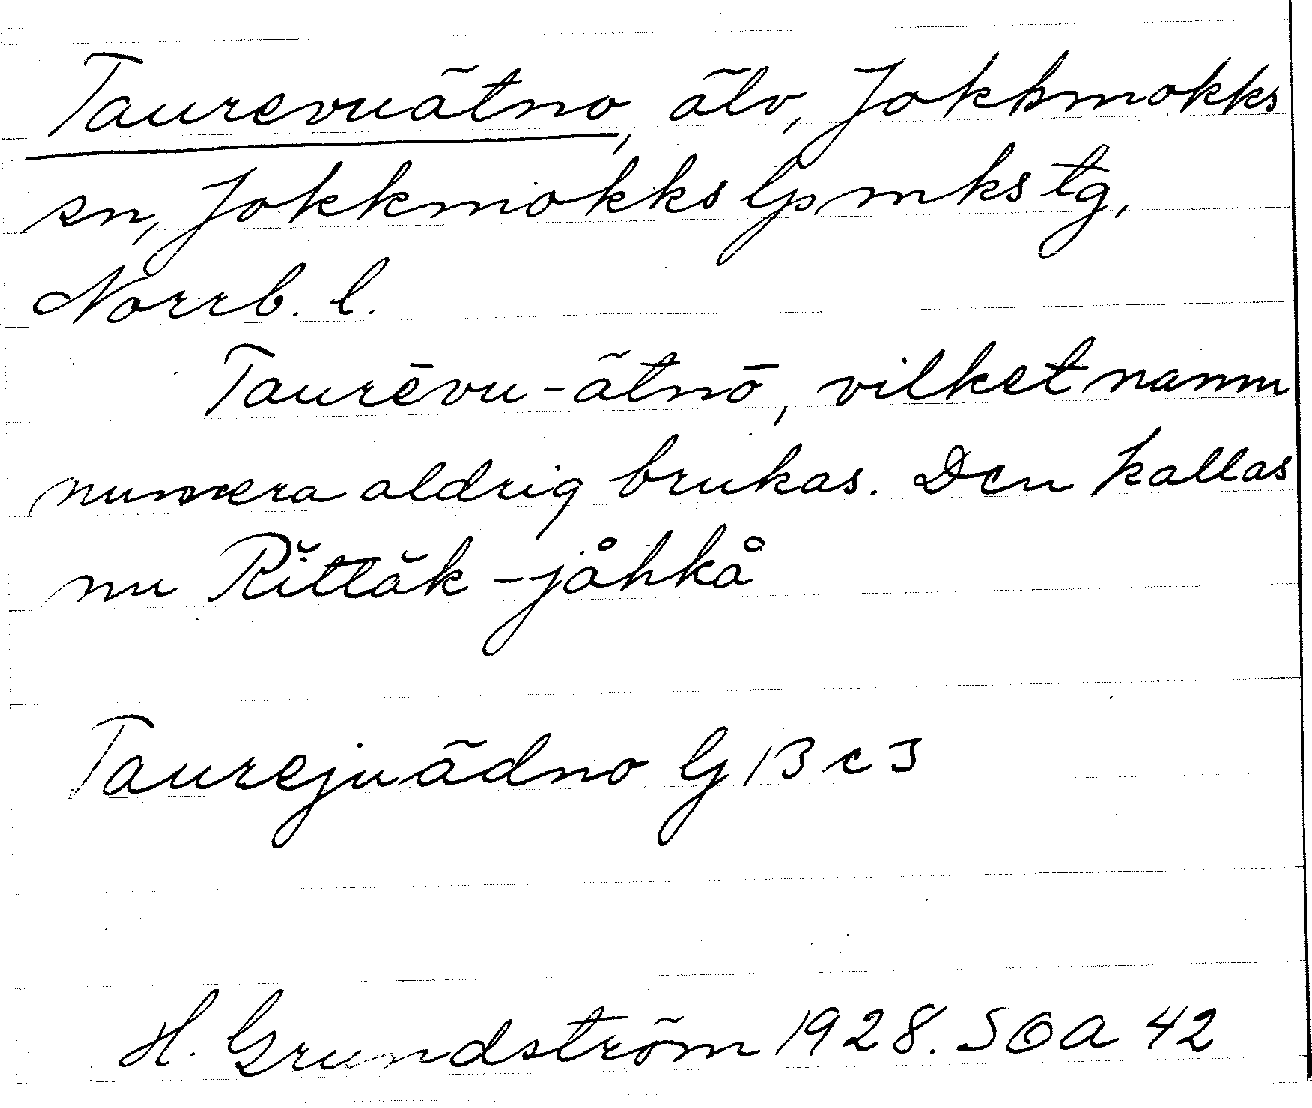 Taurevuätno, älv, Jokkmokks
sn, Jokkmokks lpmks tg,
Norrb. l.
Taurēvu-ätnō, vilket namn
numera aldrig brukas. Den kallas
nu Rĭttăk-jåhkå
Taurejuädno G 13 c 3
H. Grundström 1928. SOA 42